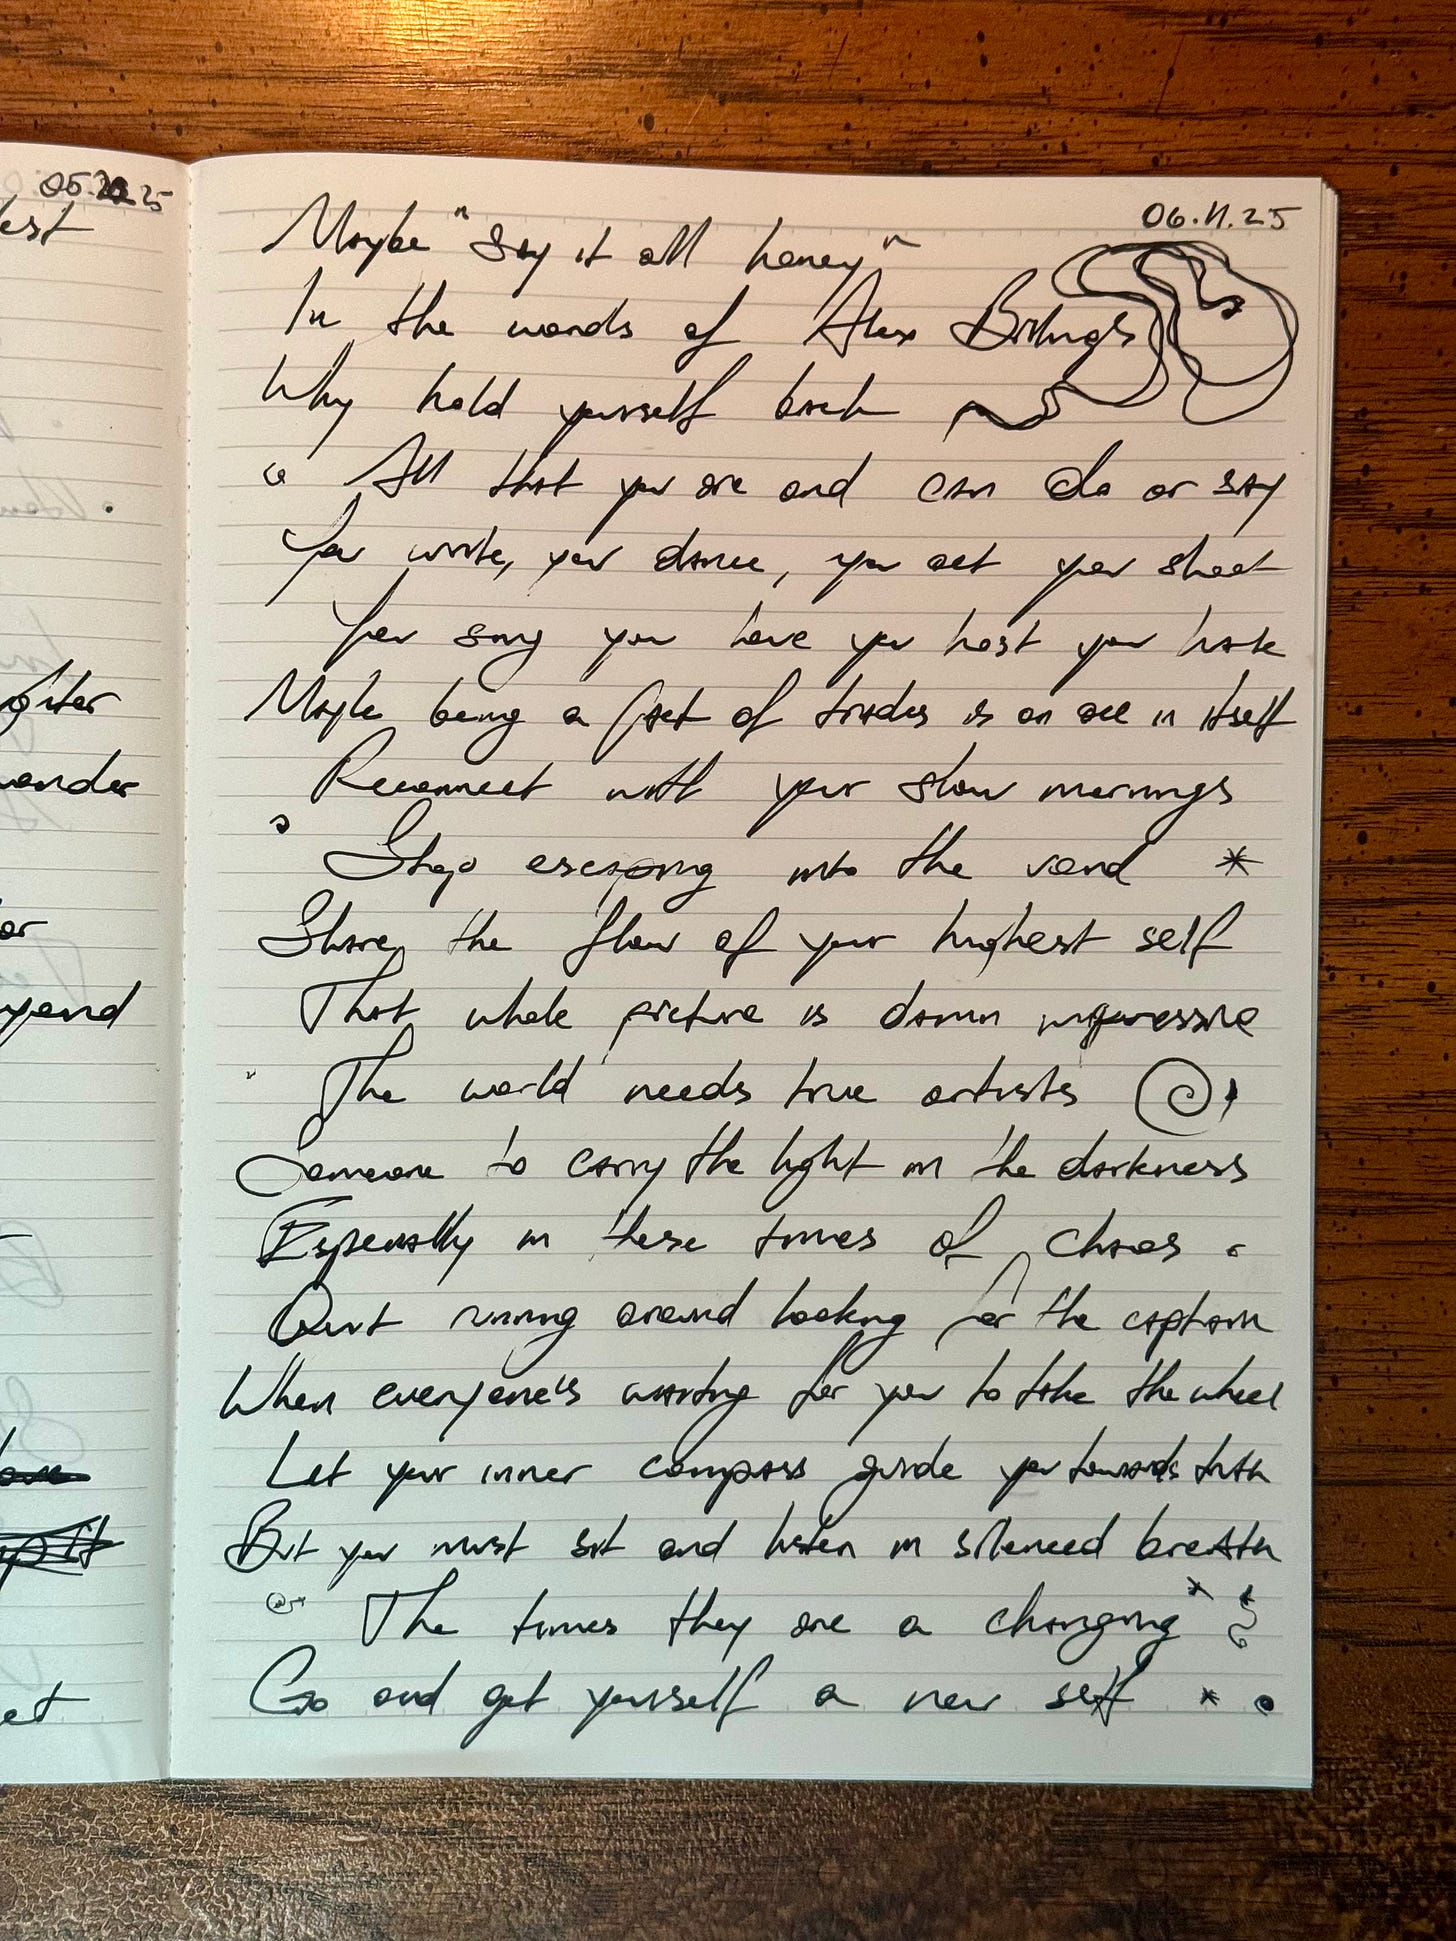 05. 25
est
giter
wander
or
yond
et
06.11.25
Maybe "Say it all honey"
In the words of Alex
Why hold yourself back
All that you are and can do or say
You write, you dance, you act you shoot
You sing you love you host you
Maybe being a of trades is an ace in itself
Reconnect with your slow mornings
Stop escaping into the void *
Share the flow of your highest self
That whole picture is damn impressive
The world needs true artists
Someone to carry the light in the darkness
Especially in these times of chaos
Quit running around looking for the captain
When everyone's waiting for you to take the wheel
Let your inner compass guide you towards truth
But you must sit and listen in silenced breath
"The times they are a changing"
Go and get yourself a new self *